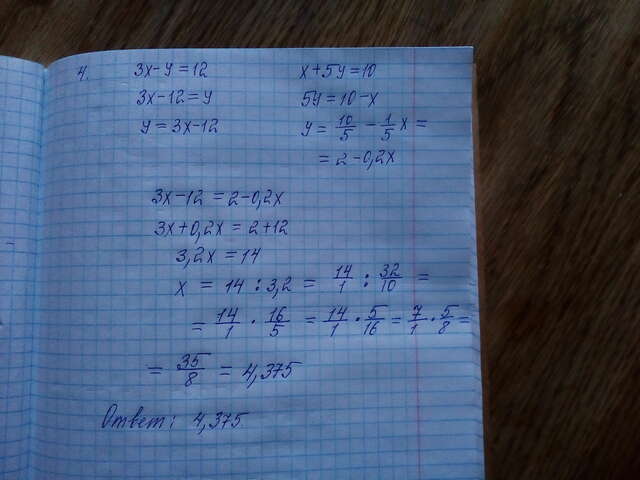 4. 3x-y=12 x+5y=10
3x-12=y 5y=10-x
y=3x-12 y=10/5-1/5x=
=2-0,2x
3x-12=2-0,2x
3x+0,2x=2+12
3,2x=14
x = 14:3,2 = 14/1 : 32/10 =
= 14/1 · 16/5 = 14/1 · 5/16 = 7/1 · 5/8 =
= 35/8 = 4,375
Ответ: 4,375